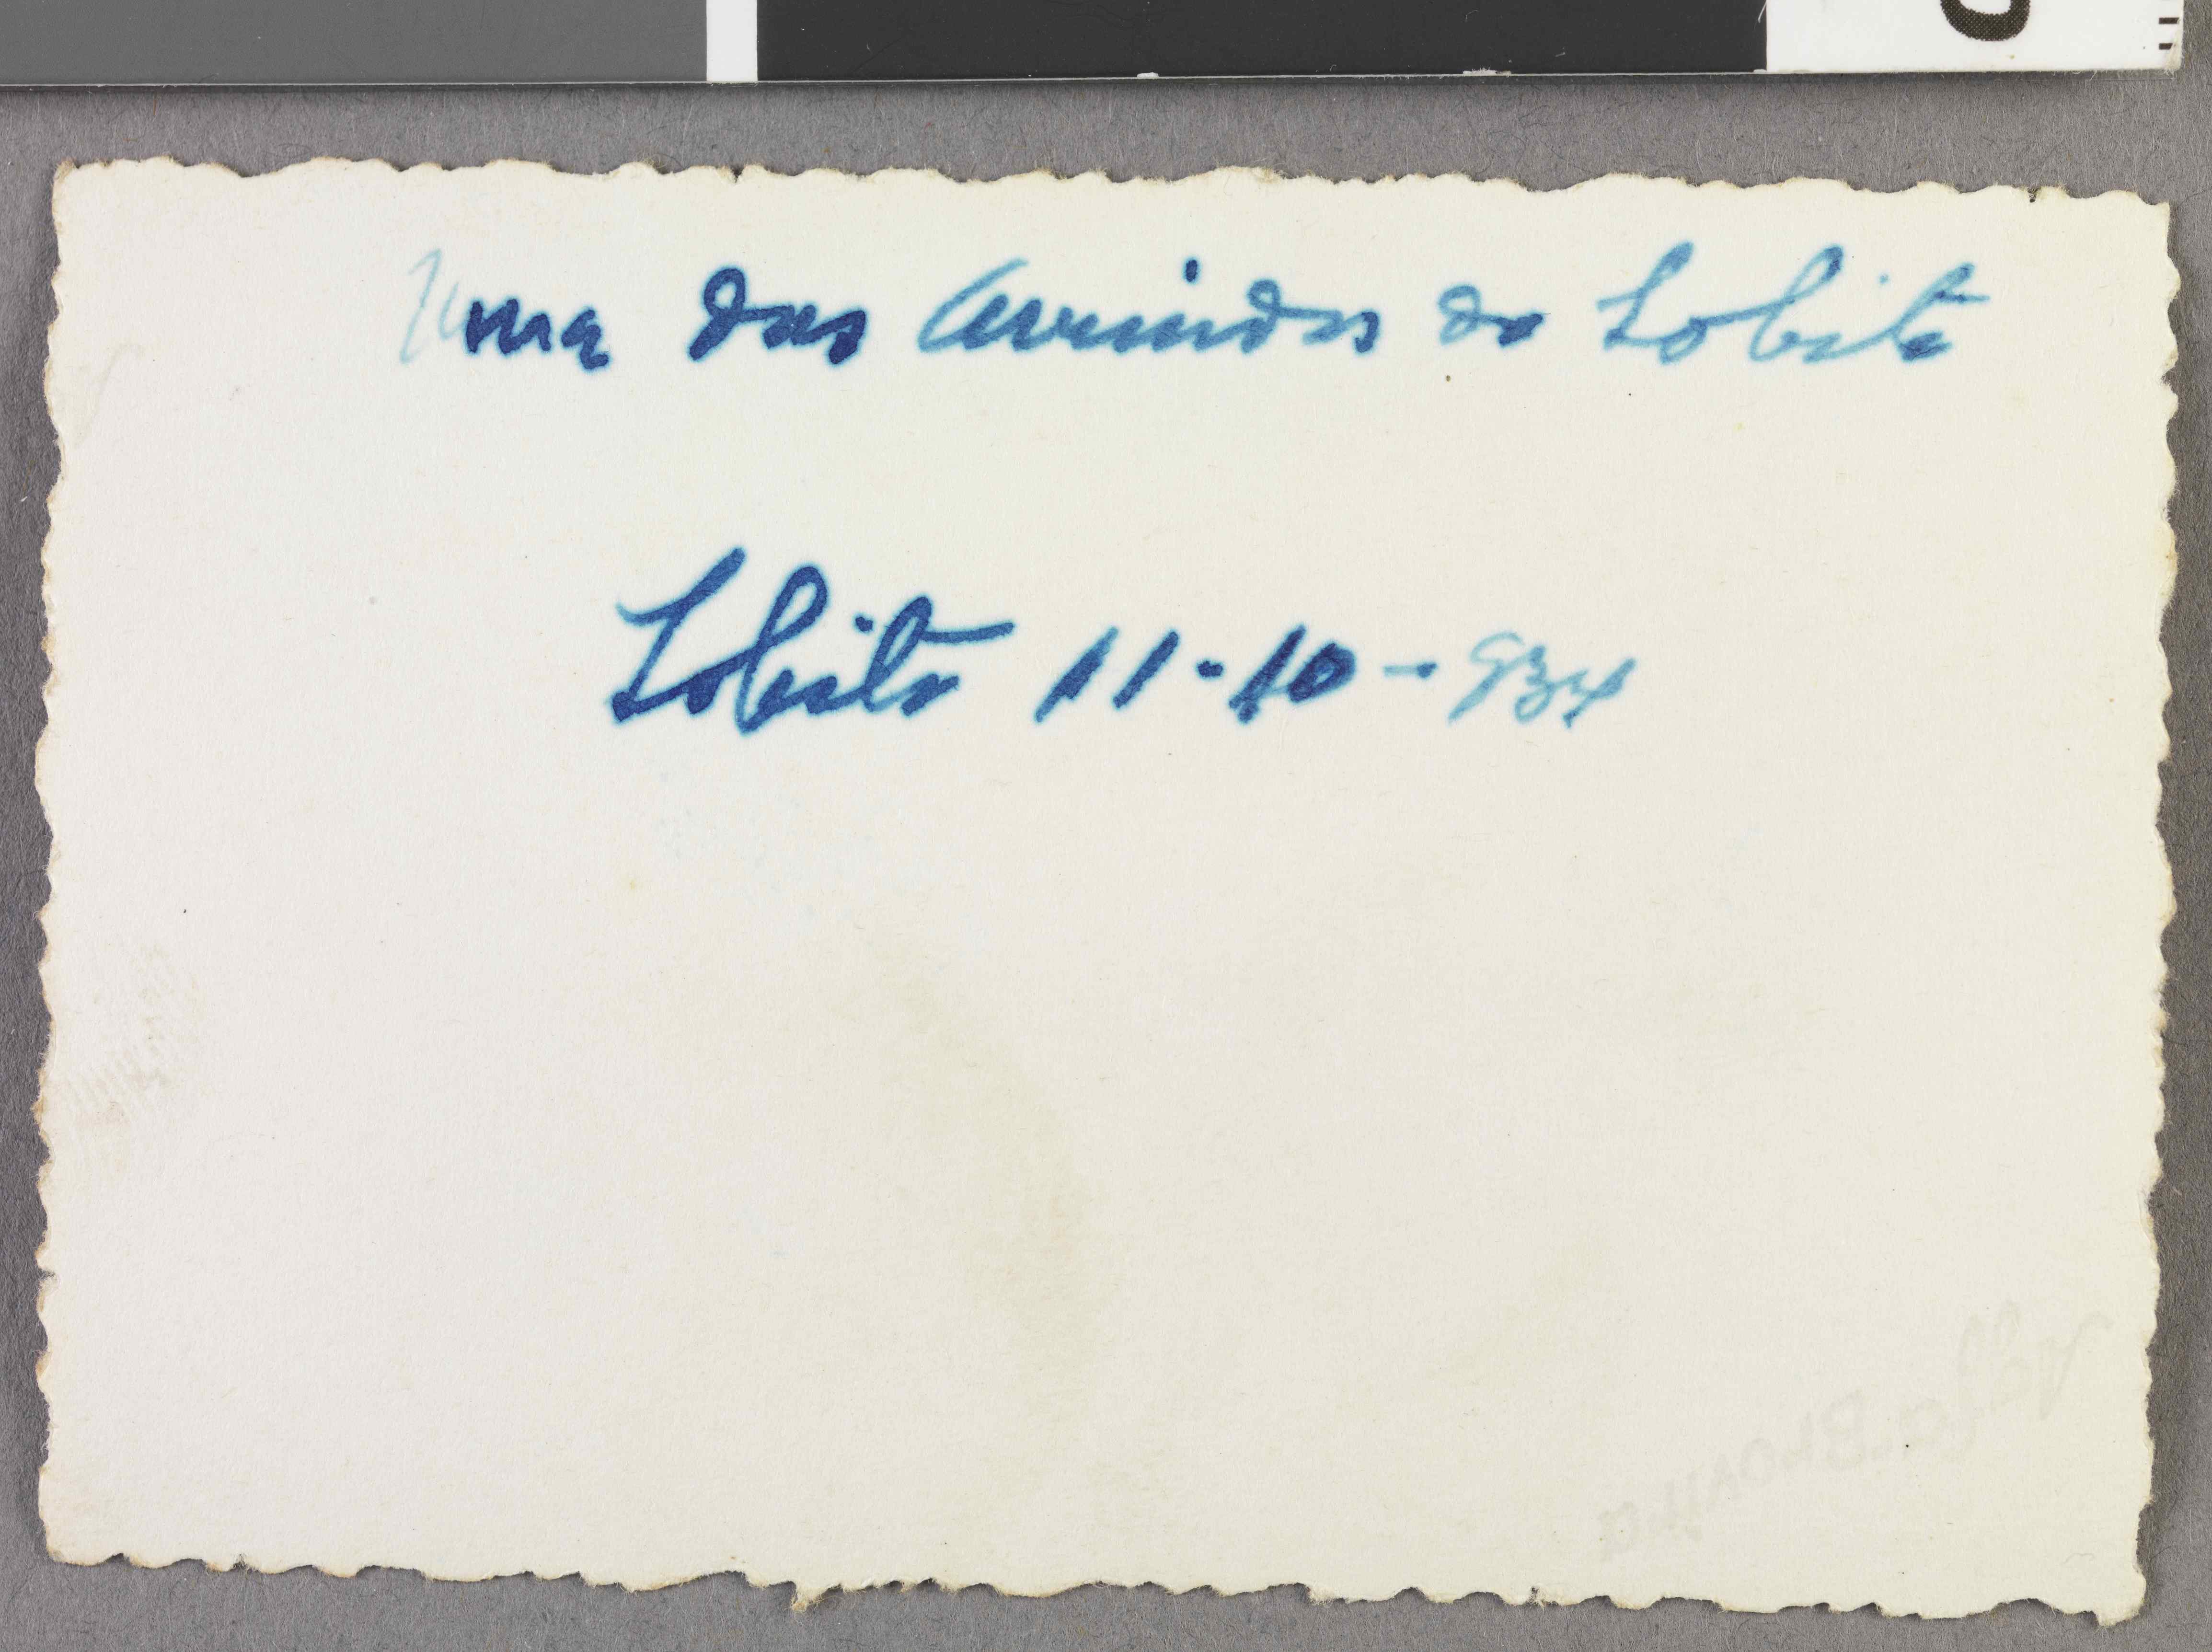 Uma das Avenidas do Lobito
Lobito 11-10-934